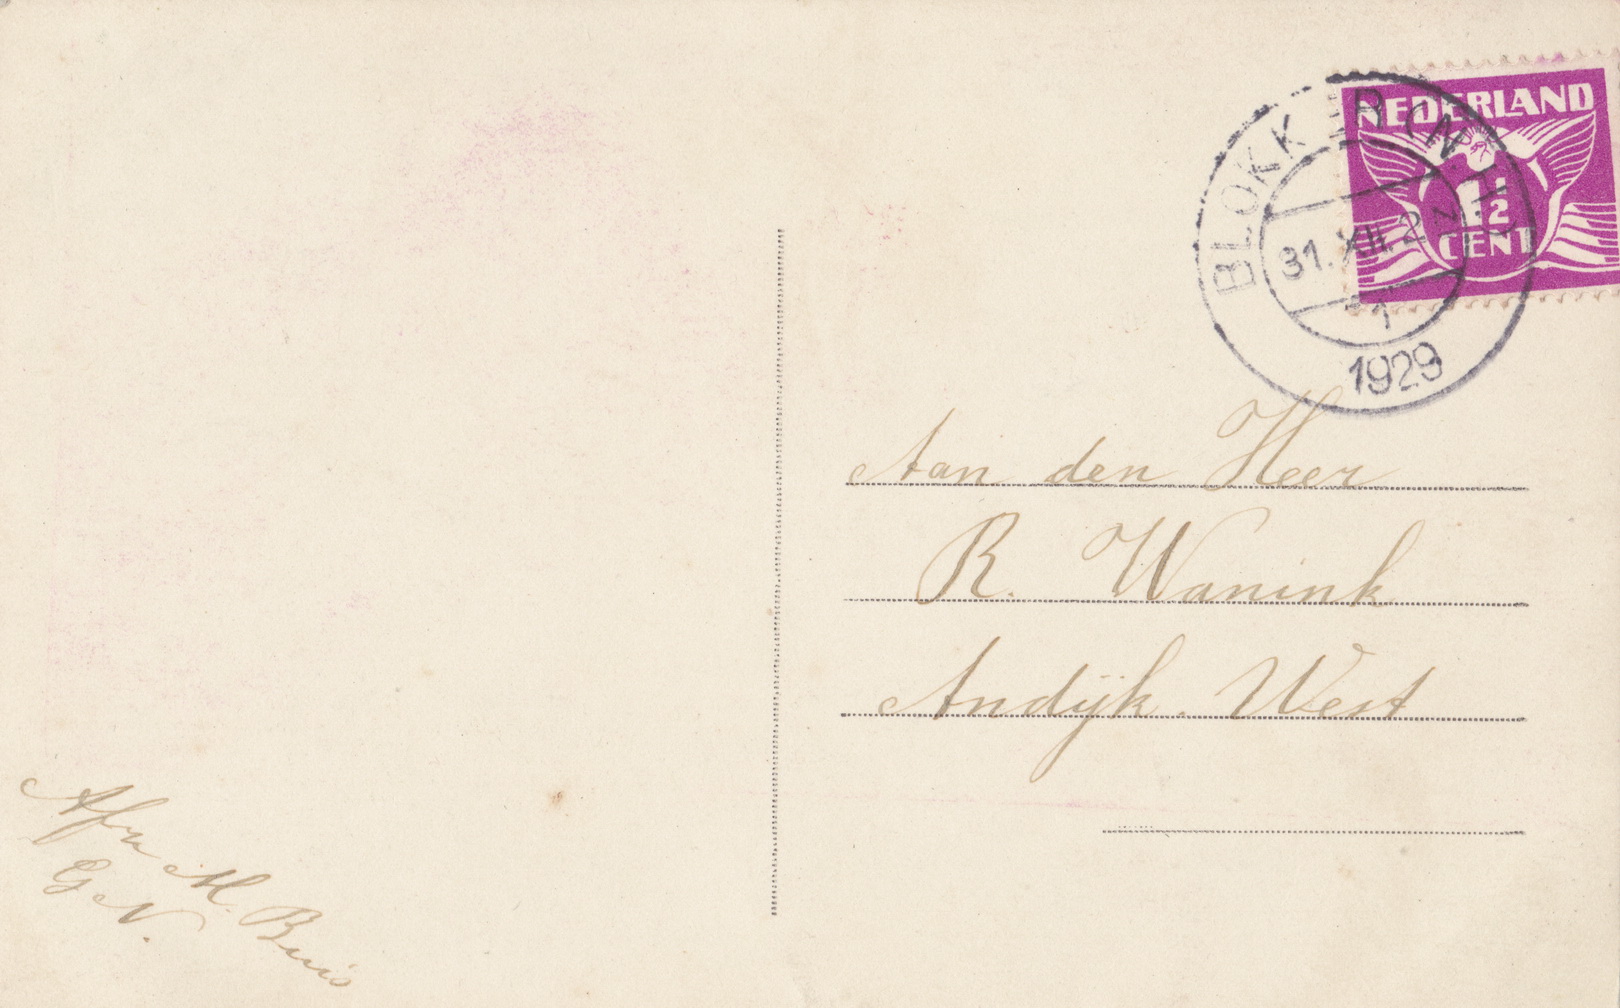 NEDERLAND
1½
CENT
BLOKKER (N.H.)
31.XII.2
1
1929
Aan den Heer
R. Wanink
Andijk. West
Afz M. Buis
G N.